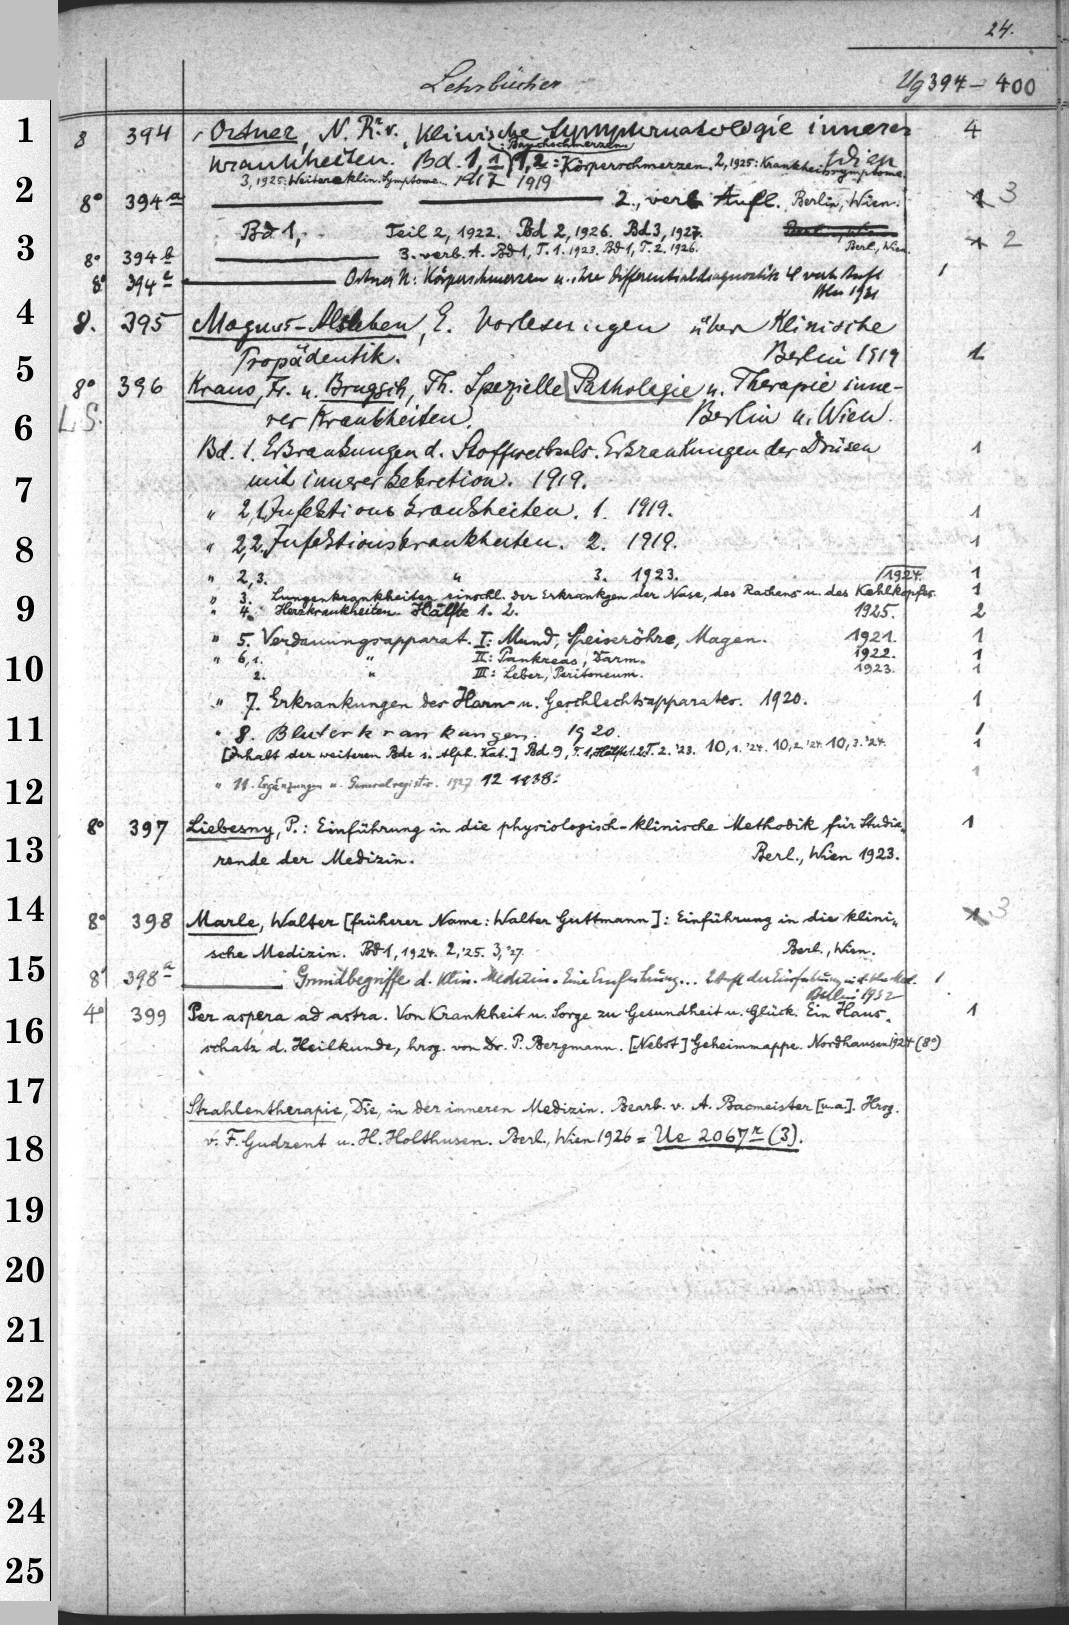 24.
Lehrbücher Ug 394 - 400
1
8 394 Ortner, N. R. v., Klinische Symptomatologie innerer 4
: Bauchschmerzen
Krankheiten. Bd. 1,1 1,2 : Körperschmerzen. 2, 1925: Krankheitssymptome. Wien
3, 1925: Weitere klin. Symptome. 1917 1919
2
8° 394a 2., verb Aufl. Berlin, Wien. 1 3
Bd. 1, Teil 2, 1922. Bd 2, 1926. Bd 3, 1927. Berl., Wien
3
8° 394b 3. verb. A. Bd 1, T. 1. 1923. Bd 1, T. 2. 1926. Berl., Wien 1 2
8° 394c Ortner N: Körperschmerzen u. ihre Differentialdiagnostik 4 verb Aufl 1
Bln 1931
4
8. 395 Magnus-Alsleben, E. Vorlesungen über Klinische
Propädeutik. Berlin 1919 1
5
8° 396 Kraus, Fr. u. Brugsch, Th. Spezielle Pathologie u. Therapie inne-
L.S. rer Krankheiten. Berlin u. Wien.
6
Bd. 1. Erkrankungen d. Stoffwechsels. Erkrankungen der Drüsen 1
mit innerer Sekretion. 1919.
7
" 2,1. Infektionskrankheiten. 1. 1919. 1
8
" 2,2. Infektionskrankheiten. 2. 1919. 1
" 2,3. " 3. 1923. 1924. 1
" 3. Lungenkrankheiten einschl. der Erkrankgen der Nase, des Rachens u. des Kehlkopfes. 1
9
" 4. Herzkrankheiten. Hälfte 1. 2. 1925. 2
" 5. Verdauungsapparat. I: Mund, Speiseröhre, Magen. 1921. 1
" 6,1. " II: Pankreas, Darm. 1922. 1
10
2. " III: Leber, Peritoneum. 1923. 1
" 7. Erkrankungen des Harn- u. Geschlechtsapparates. 1920. 1
11
" 8. Bluterkrankungen. 1920. 1
[Inhalt der weiteren Bde s. Alph. Kat.] Bd 9, T. 1, Hälfte 1.2 T. 2. '23. 10,1. '24. 10,2. '24. 10,3. '24. 1
12
" 11. Ergänzungen u. Generalregister. 1927 12 1938. 1
8° 397 Liebesny, P.: Einführung in die physiologisch-klinische Methodik für Studie- 1
13
rende der Medizin. Berl., Wien 1923.
14
8° 398 Marle, Walter [früherer Name: Walter Guttmann]: Einführung in die klini- 3
sche Medizin. Bd 1, 1924. 2, '25. 3, '27. Berl., Wien.
15
8° 398a Grundbegriffe d. klin. Medizin. Eine Einführung... 2. Aufl der Einführung in d. klin Med. 1
Berlin 1932
4° 399 Per aspera ad astra. Von Krankheit u. Sorge zu Gesundheit u. Glück. Ein Haus- 1
16
schatz d. Heilkunde, hrsg. von Dr. P. Bergmann. [Nebst] Geheimmappe. Nordhausen 1924 (8°)
17
Strahlentherapie, Die, in der inneren Medizin. Bearb. v. A. Bacmeister [u.a.]. Hrsg.
18
v. F. Gudzent u. H. Holthusen. Berl., Wien 1926 = Ue 2067n (3).
19
20
21
22
23
24
25